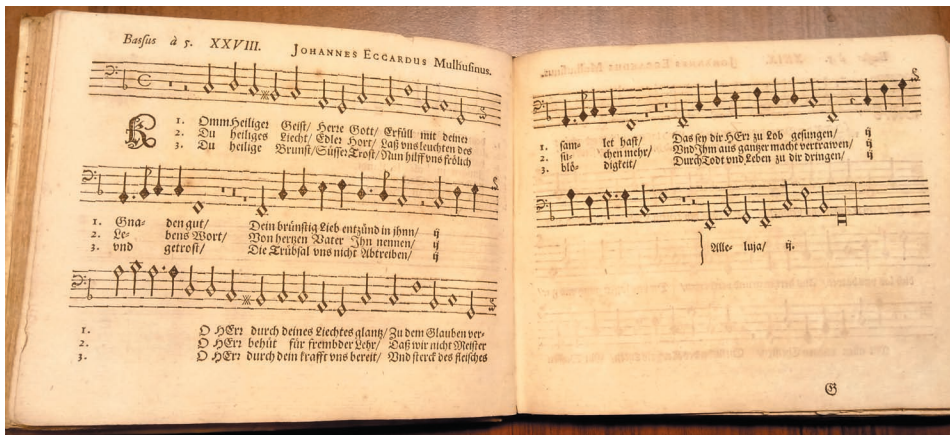 Bassus à 5. XXVIII. JOHANNES ECCARDUS Mulhusinus.
1. KOmm Heiliger Geist/ Herre Gott/ Erfüll mit deiner
2. Du heiliges Liecht/ Edler Hort/ Laß vns leuchten des
3. Du heilige Brunst/ Süsser Trost/ Nun hilff vns frölich
1. Gna- den gut/ Dein brünstig Lieb entzünd in jhnn/ ij
2. Le- bens Wort/ Von hertzen Vater Ihn nennen/ ij
3. vnd getrost/ Die Trübsal vns nicht Abtreiben/ ij
1. O HErr durch deines Liechtes glantz/ Zu dem Glauben ver-
2. O HErr behüt für frembder Lehr/ Daß wir nicht Meister
3. O HErr durch dein krafft vns bereit/ Vnd sterck des fleisches
1. sam- let hast/ Das sey dir HErr zu Lob gesungen/ ij
2. su- chen mehr/ Vnd Ihm aus gantzer macht vertrawen/ ij
3. blö- digkeit/ Durch Todt vnd Leben zu dir dringen/ ij
Alle- luja/ ij.
G